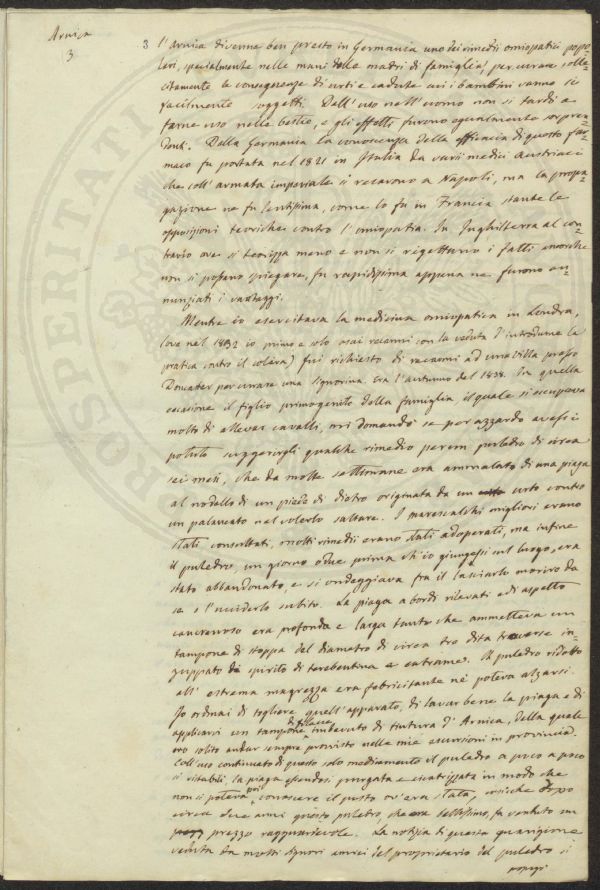 Arnica
3
3 l'arnica divenne ben presto in Germania uno dei rimedii omiopatici popo-
lari, specialmente nelle mani delle madri di famiglia, per curare solle-
citamente le conseguenze di urti e cadute cui i bambini vanno si
facilmente soggetti. Dall'uso nell'uomo non si tardò a
farne uso nelle bestie, e gli effetti furono egualmente sorpren-
denti. Dalla Germania la conoscenza della efficacia di questo far-
maco fu portata nel 1821 in Italia da varii medici Austriaci
che coll'armata imperiale si recarono a Napoli, ma la propa-
gazione ne fu lentissima, come lo fu in Francia stante le
opposizioni teoriche contro l'omiopatia. In Inghilterra al con-
trario ove si teorizza meno e non si rigettano i fatti ancorche
non si possano spiegare, fu rapidissima appena ne furono an-
nunziati i vantaggi.
Mentre io esercitava la medicina omiopatica in Londra,
(ove nel 1832 io primo e solo osai recarmi con la veduta d'introdurne la
pratica contro il colèra) fui richiesto di recarmi ad una villa presso
Doncaster per curare una signorina. Era l'autunno del 1838. In quella
occasione il figlio primogenito della famiglia il quale si occupava
molto di allevar cavalli, mi domandò se per azzardo avessi
potuto suggerirgli qualche rimedio per un puledro di circa
sei mesi, che da molte settimane era ammalato di una piaga
al nodello di un piede di dietro originata da un urto contro
un palancato nel volerlo saltare. I marescalchi migliori erano
stati consultati, molti rimedii erano stati adoperati, ma infine
il puledro, un giorno o due prima ch'io giungessi sul luogo, era
stato abbandonato, e si ondeggiava fra il lasciarlo morire da
se o l'ucciderlo subito. La piaga a bordi rilevati e di aspetto
cancrenoso era profonda e larga tanto che ammetteva un
tampone di stoppa del diametro di circa tre dita traverse in-
zuppato di spirito di terebentina e catrame. Il puledro ridotto
all'estrema magrezza era febricitante nè poteva alzarsi.
Io ordinai di togliere quell'apparato, di lavar bene la piaga e di
applicarvi un tampone di filacce imbevuto di tintura d'Arnica, della quale
ero solito andar sempre provvisto nelle mie escursioni in provincia.
Coll'uso continuato di questo solo medicamento il puledro a poco a poco
si ristabilì, la piaga essendosi purgata e cicatrizzata in modo che
non si poteva poi conoscere il posto ov'era stata, cosicche dopo
circa due anni questo puledro, che era bellissimo, fu venduto un
prezzo ragguardevole. La notizia di questa guarigione
veduta da molti signori amici del proprietario del puledro si